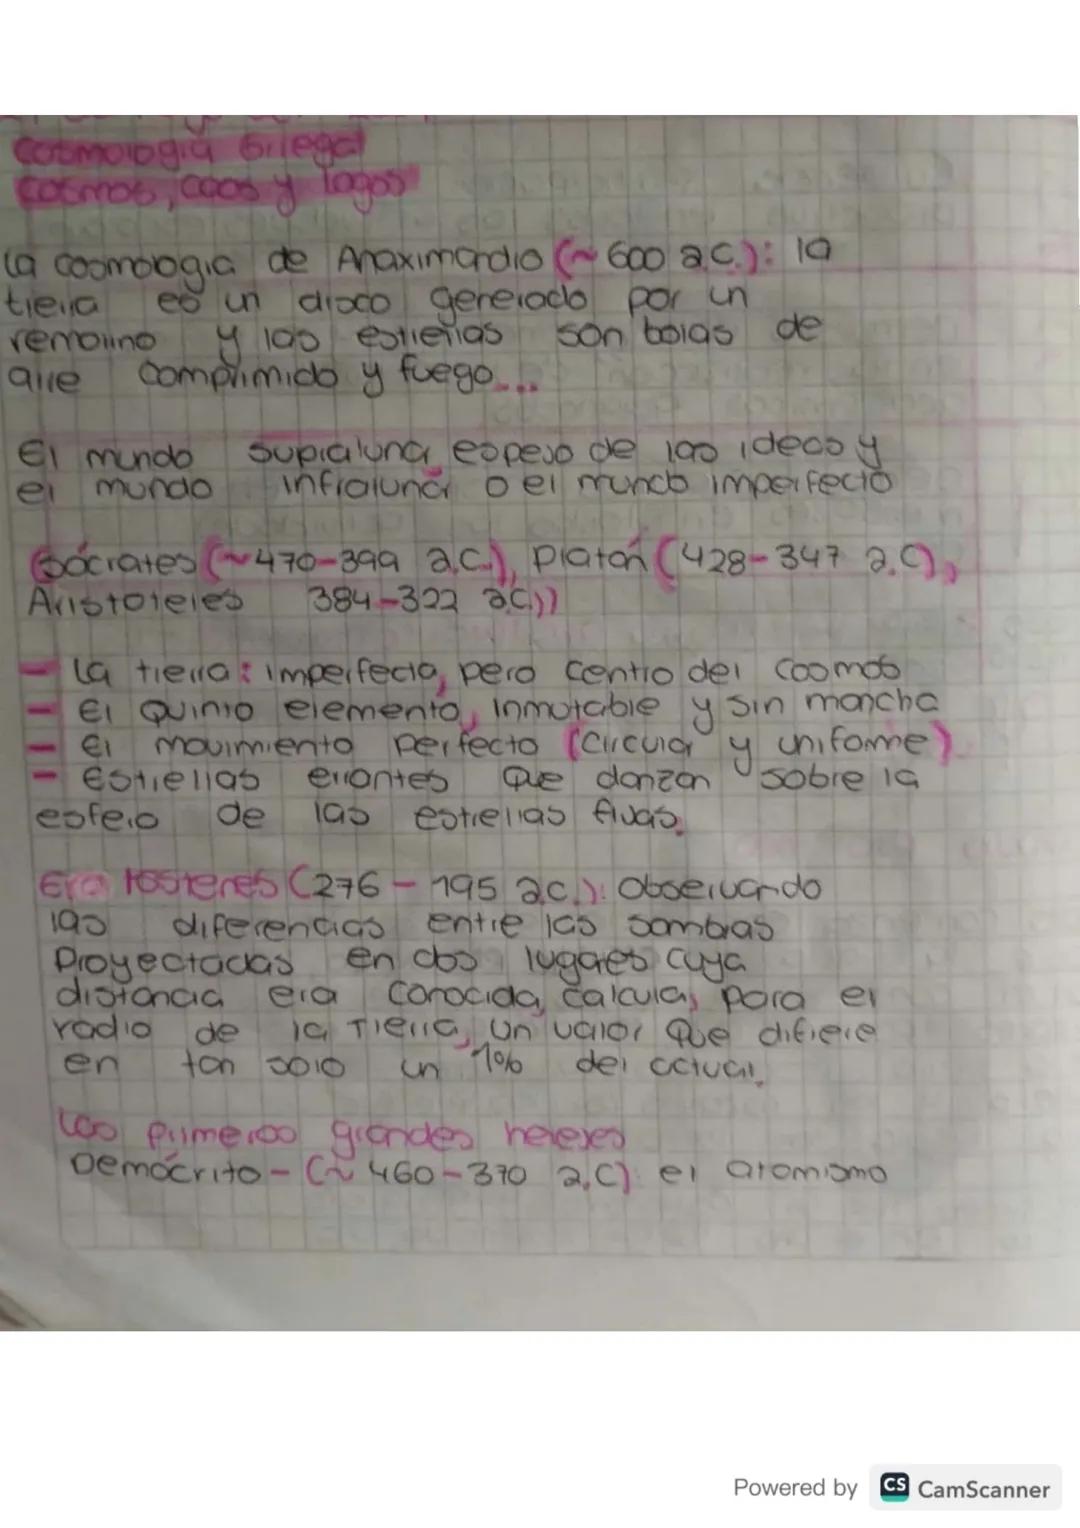 cosmologia Griega
cosmos, caos y logos
La cosmologia de Anaximandio (~ 600 a.C.): la
tierra es un disco generado por un
remolino y las estrellas son bolas de
aire comprimido y fuego....
El mundo supralunar espejo de las ideas y
el mundo infralunar o el mundo imperfecto
(Sócrates (~470-399 a.C.), Platón (428-347 a.C),
Aristoteles 384-322 a.C.))
- La tierra: imperfecta, pero centro del cosmos
- El Quinto elemento, inmutable y sin mancha
- El movimiento perfecto (circular y uniforme)
- Estrellas errantes que danzan sobre la
esfera de las estrellas fijas.
Era tosteres (276 - 195 a.C.): Observando
las diferencias entre las sombras
Proyectadas en dos lugares cuya
distancia era conocida, calcula, para el
radio de la Tierra, un valor que difiere
en tan solo un 1% del actual.
Los primeros grandes herejes
Demócrito - (~ 460-370 a.C) el atomismo
Powered by CS CamScanner